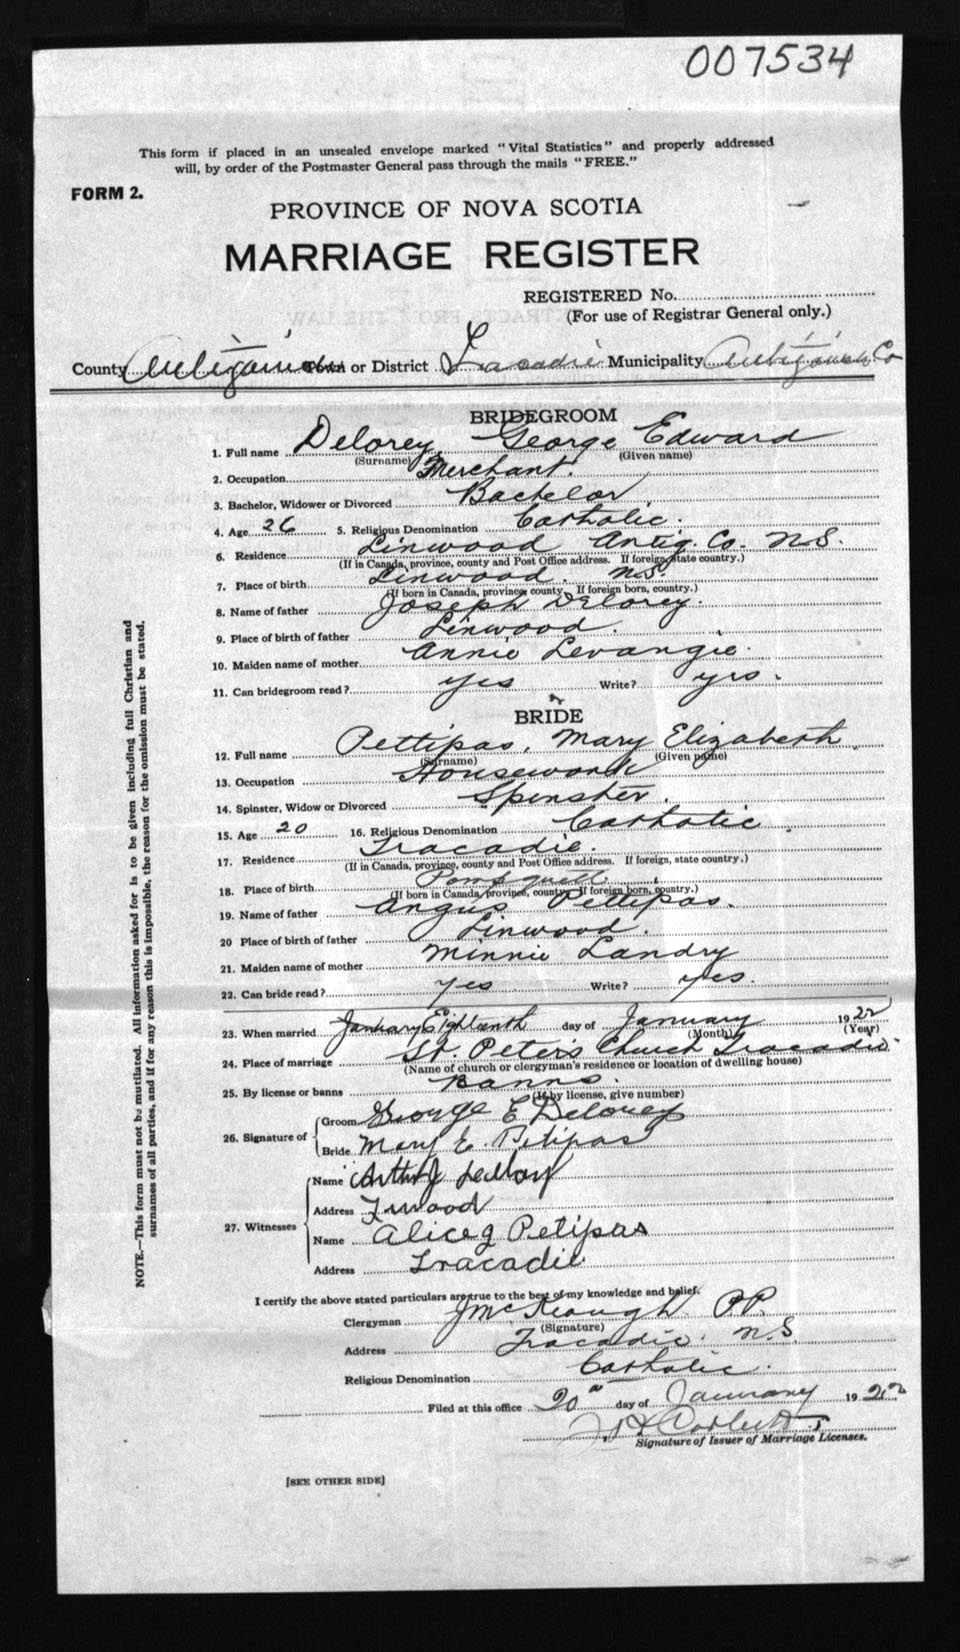 007534
This form if placed in an unsealed envelope marked "Vital Statistics" and properly addressed
will, by order of the Postmaster General pass through the mails "FREE."
FORM 2.
PROVINCE OF NOVA SCOTIA
MARRIAGE REGISTER
REGISTERED No.
(For use of Registrar General only.)
County Antigonish Town or District Tracadie Municipality Antigonish Co
BRIDEGROOM
1. Full name Delorey George Edward
(Surname) (Given name)
2. Occupation Merchant.
3. Bachelor, Widower or Divorced Bachelor
4. Age 26 5. Religious Denomination Catholic.
6. Residence Linwood Antig. Co. N.S.
(If in Canada, province, county and Post Office address. If foreign, state country.)
7. Place of birth Linwood. N.S.
(If born in Canada, province, county. If foreign born, country.)
8. Name of father Joseph Delorey.
9. Place of birth of father Linwood.
10. Maiden name of mother Annie Levangie.
11. Can bridegroom read? yes Write? yes.
BRIDE
12. Full name Pettipas, Mary Elizabeth.
(Surname) (Given name)
13. Occupation Housework
14. Spinster, Widow or Divorced Spinster.
15. Age 20 16. Religious Denomination Catholic.
17. Residence Tracadie.
(If in Canada, province, county and Post Office address. If foreign, state country.)
18. Place of birth Pomquett
(If born in Canada, province, county. If foreign born, country.)
19. Name of father Angus Pettipas.
20 Place of birth of father Linwood.
21. Maiden name of mother Minnie Landry
22. Can bride read? yes Write? yes.
23. When married January Eighteenth day of January 1922
(Month) (Year)
24. Place of marriage St. Peter's Church Tracadie.
(Name of church or clergyman's residence or location of dwelling house)
25. By license or banns Banns.
(If by license, give number)
26. Signature of Groom George E Delorey
Bride Mary E. Petipas
27. Witnesses Name Arthur J
Address
Name Alice J Petipas
Address Tracadie
I certify the above stated particulars are true to the best of my knowledge and belief.
Clergyman J McKeough P.P.
(Signature)
Address Tracadie. N.S.
Religious Denomination Catholic.
Filed at this office 20 day of January 1922
Signature of Issuer of Marriage Licenses.
[SEE OTHER SIDE]
NOTE.—This form must not be mutilated. All information asked for is to be given including full Christian and
surnames of all parties, and if for any reason this is impossible, the reason for the omission must be stated.